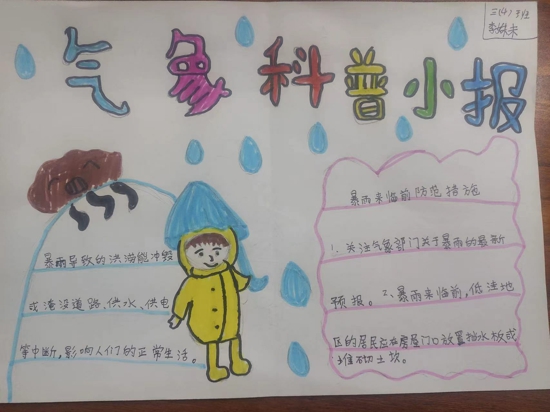 三(4)班
气象科普小报
暴雨导致的洪涝能冲毁
或淹没道路、供水、供电
等中断,影响人们的正常生活。
暴雨来临前防范措施
1.关注气象部门关于暴雨的最新
预报。2、暴雨来临前,低洼地
区的居民应在房屋门口放置挡水板或
堆砌土坎。